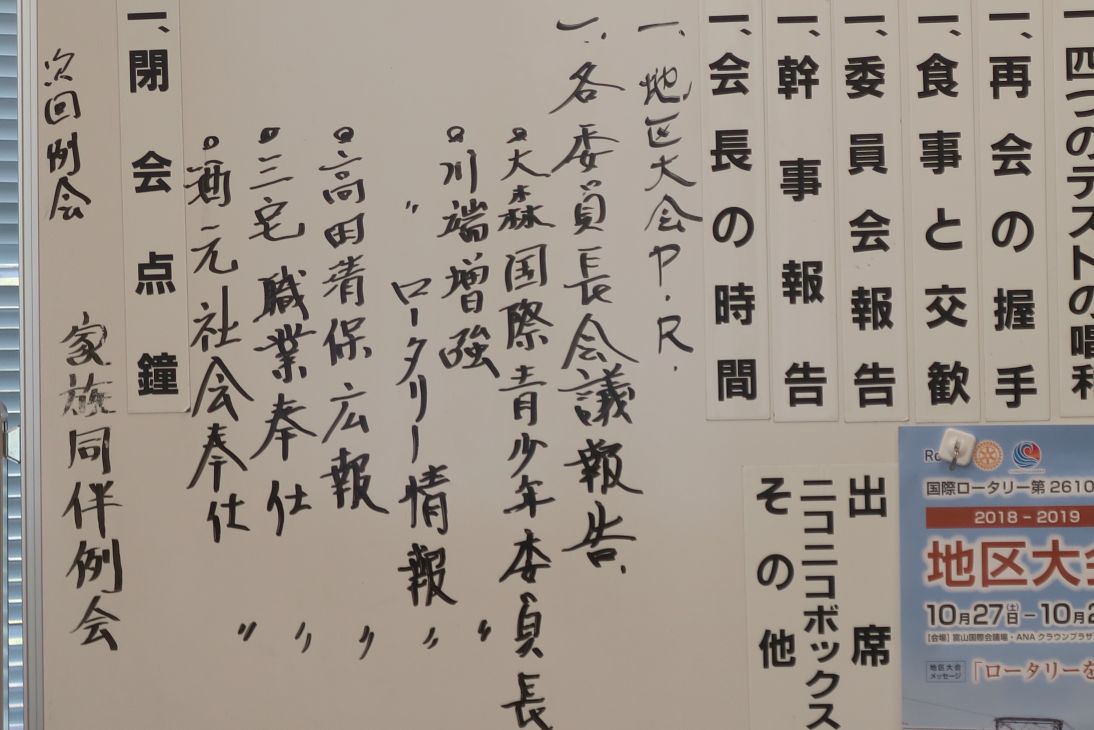 一、四つのテストの唱和
一、再会の握手
一、食事と交歓
一、委員会報告
一、幹事報告
一、会長の時間
一、地区大会P.R.
一、各委員長会議報告.
大森国際青少年委員長
川端増強 〃
〃 ロータリー情報 〃
高田清保広報 〃
三宅職業奉仕 〃
酒元社会奉仕 〃
一、閉会点鐘
次回例会 家族同伴例会
出席
ニコニコボックス
その他
国際ロータリー第2610
2018-2019
地区大会
10月27日(土)-10月2
[会場]富山国際会議場・ANAクラウンプラザ
地区大会
メッセージ
「ロータリーを